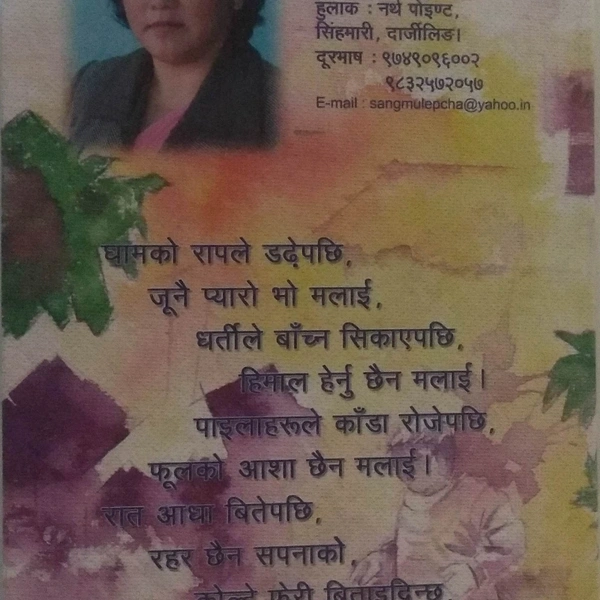 हुलाक : नर्थ पोइण्ट,
सिंहमारी, दार्जीलिङ।
दूरभाष : ९७४९०९६००२
९८३२५७२०५७
E-mail : sangmulepcha@yahoo.in
घामको रापले डढेपछि,
जूनै प्यारो भो मलाई,
धर्तीले बाँच्न सिकाएपछि,
हिमाल हेर्नु छैन मलाई।
पाइलाहरूले काँडा रोजेपछि,
फूलको आशा छैन मलाई।
रात आधा बितेपछि,
रहर छैन सपनाको,
कोल्टे फेरी बिताइदिन्छु,